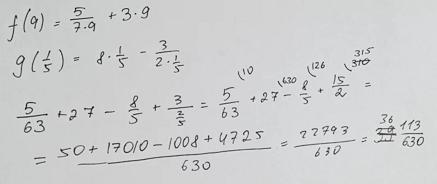 f(9) = 5/7·9 + 3·9
g(1/5) = 8·1/5 - 3/2·1/5
5/63 + 27 - 8/5 + 3/(2/5) = 5/63 (10 + 27 (630 - 8/5 (126 + 15/2 (315 =
= 50 + 17010 - 1008 + 4725/630 = 22793/630 = 36 113/630